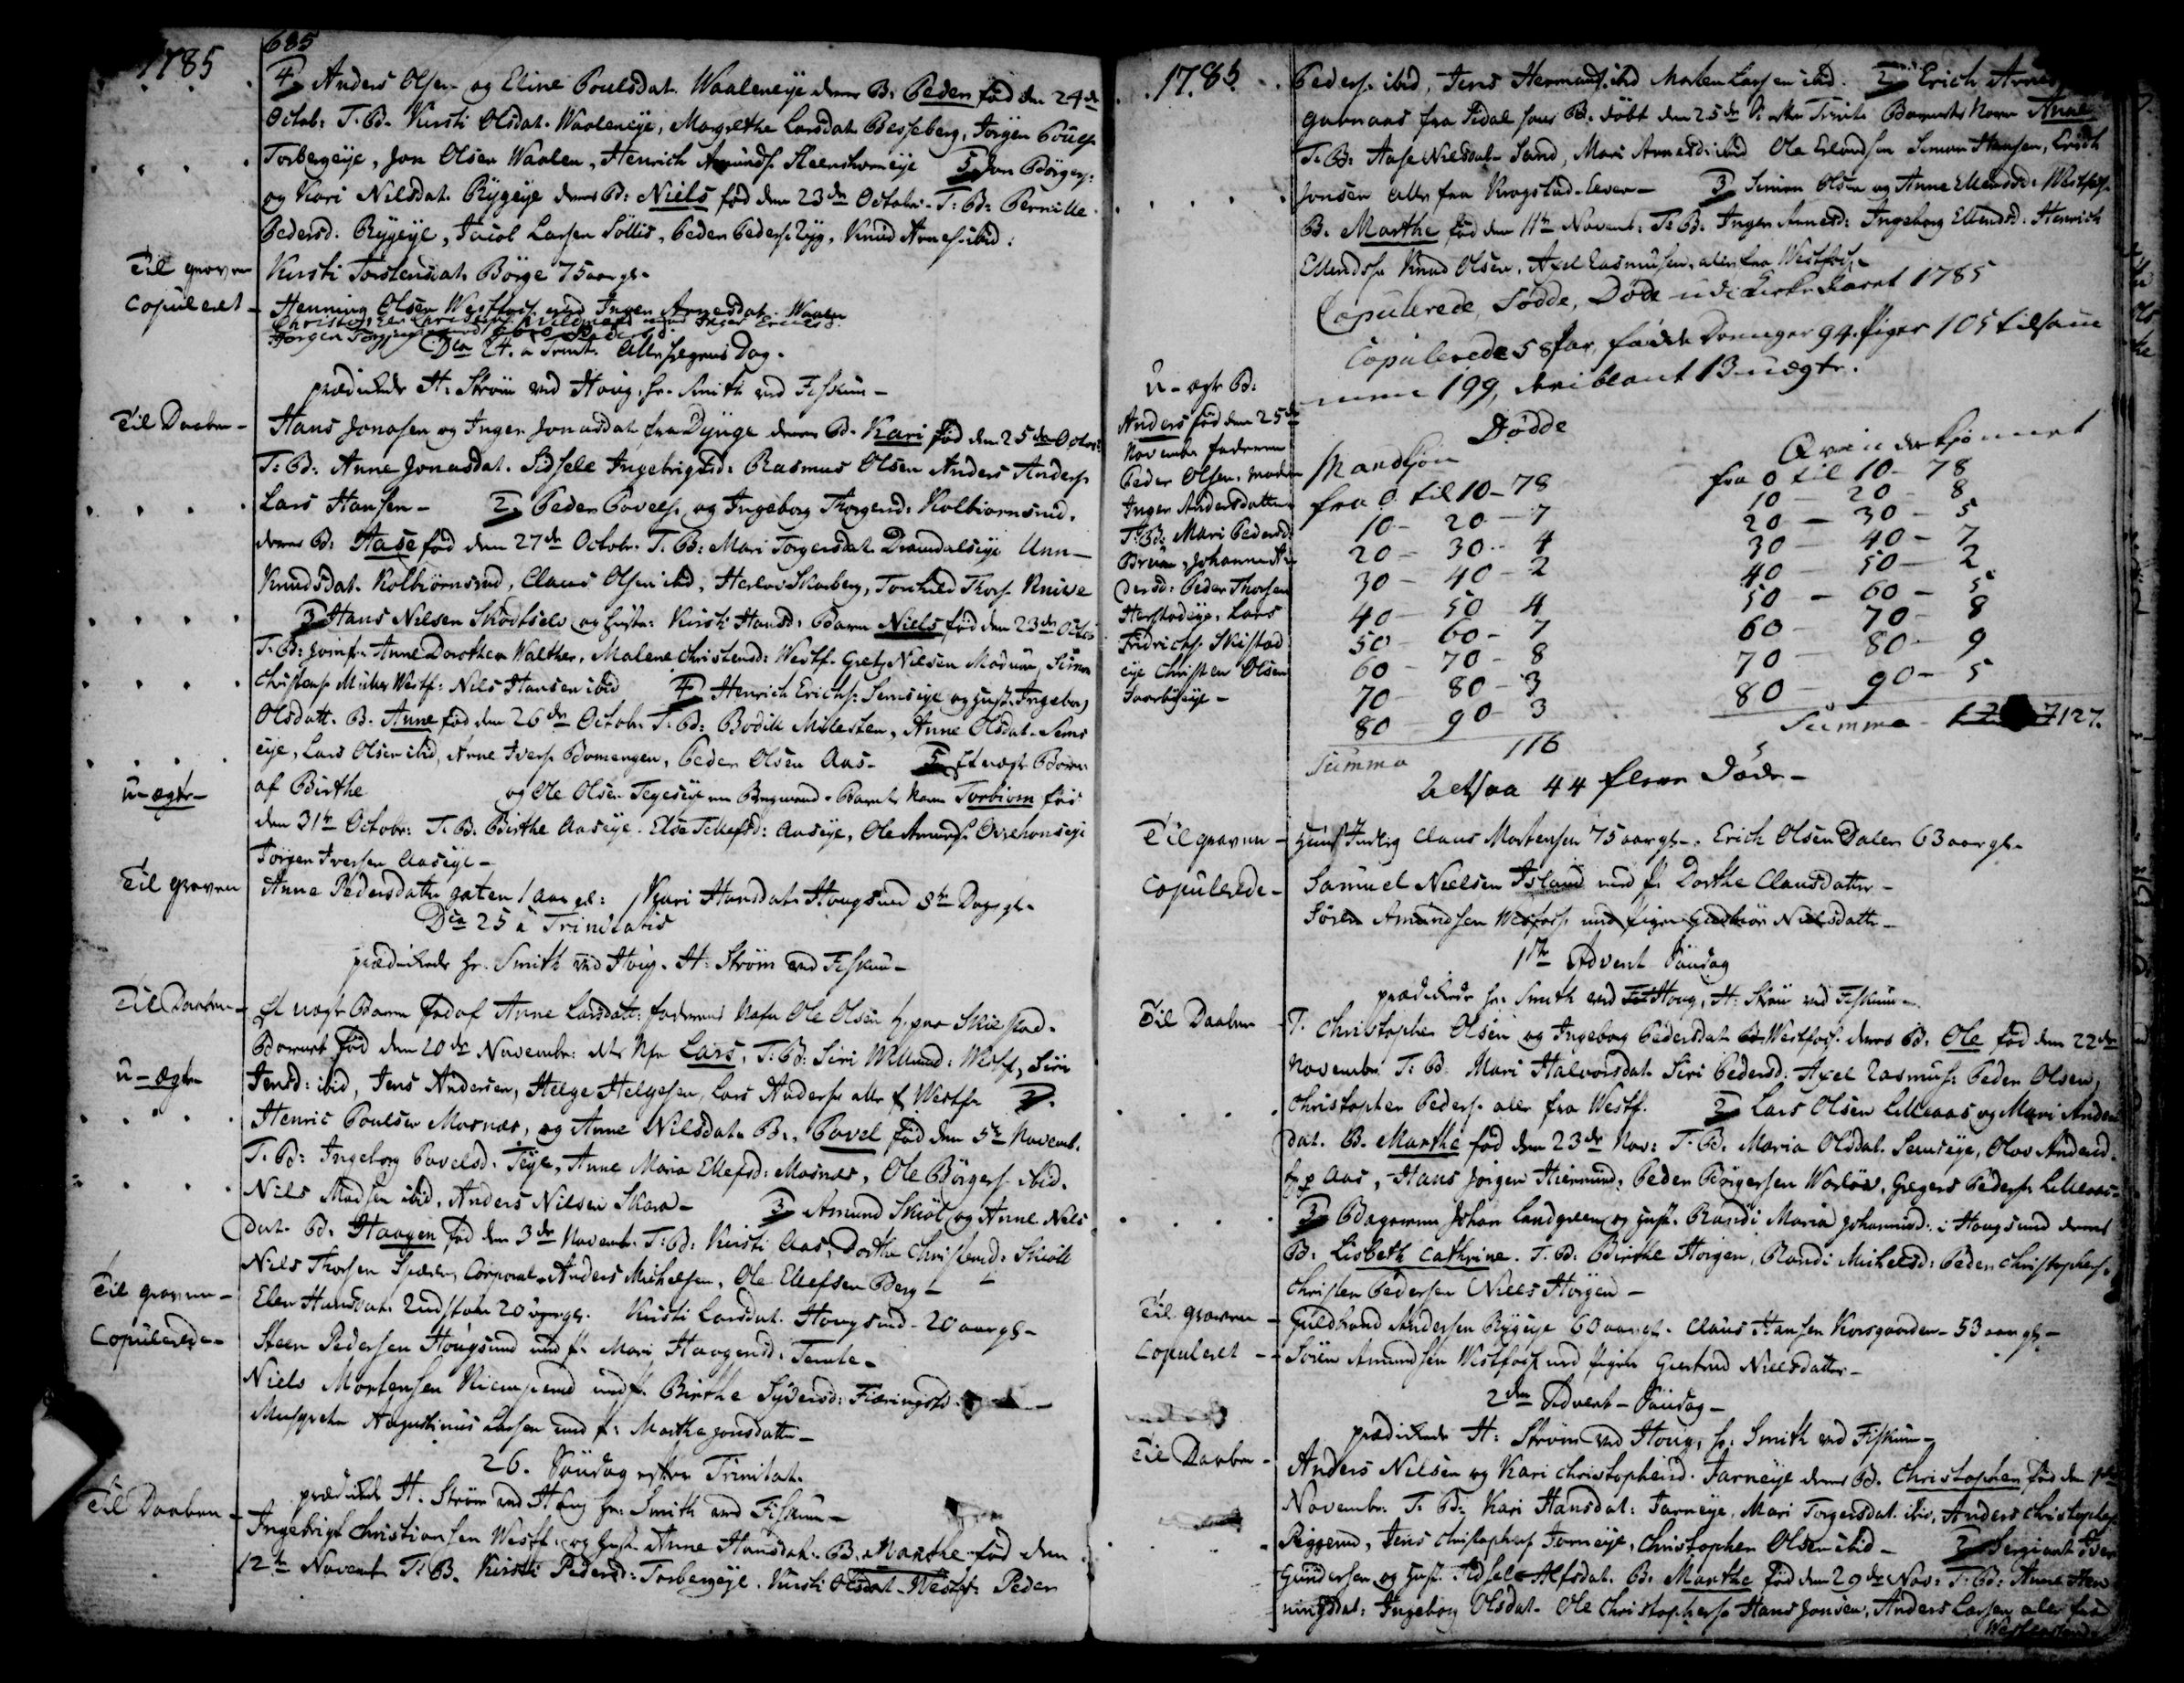 685
1785
4 Anders Olsen og Eline Poulsdat. Waaleneye deres B: Peder fød den 24de
Octob: T. B. Kirsti Olsdat. Waaleneye, Margrethe Larsdat. Besseberg, Jørgen Pouels.
Torbergeye, Jon Olsen Waalen, Henrich Amunds. Steenshorneye 5 Jon Børgers:
og Kari Nilsdat. Rygeye deres B: Niels fød den 23de Octobr. T: B: Pernille
Pedersd. Rygeye, Jacob Larsen Sollis, Peder Peders. Ryg, Knud Arnes. ibid:
Til graven Kirsti Torstensdat. Børge 75 aar gl.
Copuleret - Henning Olsen Westfoss. med Inger Arnesdat. Waalen
Dca 24. a Trinit. Alle helgens Dag.
prædikede H: Strøm ved Houg, hr. Smith ved Fiskum -
Til Daaben - Hans Jonasen og Inger Jonasdat. fra Dynge deres B. Kari fød den 25de Octobr:
T: B: Anne Jonasdat. Sidsele Ingebrigtsd: Rasmus Olsen Anders Anders.
Lars Hansen - 2 Peder Povels. og Ingeborg Thorgersd: Kolbiørnsrud.
deres B: Aase fød den 27de Octobr. T. B: Mari Torgersdat. Dramdalseye Unn-
Knudsdat. Kolbiørnsrud, Claus Olsen ibid, Herlov Skarberg, Torkild Thors. Kniive
3 Hans Nilsen Skodtselv og hustr: Kirsti Hansd: Barn Niels fød den 23de Octob
T. B: Jomfr. Anne Dorothea Walther, Malene Christensd: Westf. Gretz Nielsen Modum, Simon
Christens. Muller Westf: Nils Hansen ibid 4 Henrich Erichs. Semseye og hust. Ingeborg
Olsdatt. B. Anne fød den 26de Octobr. T. B: Bodill Millesten, Anne Olsdat. Sems
eye, Lars Olsen ibid, Arne Ivers. Domengen, Peder Olsen Aas- 5 Et uægte Barn
u-ægte - af Birthe og Ole Olsen Teyeseye en Bergmand. Barnets Navn Torbiorn fød
den 31te Octobr: T. B. Birthe Aaseye. Else Tellefsd: Aaseye, Ole Amunds. Ovrehouseye
Jørgen Iversen Aaseye -
Til graven Anne Pedersdatter gaten 1 aar gl: Kari Hansdat. Hougsund 8te Dage gl.
Dca 25 a Trinitatis
prædikede hr. Smith ved Houg. H: Strøm ved Fiskum -
Til Daaben - Et uægte Barn fød af Anne Larsdatt: faderens Nafn Ole Olsen Skiestad.
Barnet fød den 20de Novembr: dets Nfn Lars, T: B: Siri Willumsd: Westf, Siri
u-ægte Jensd: ibid, Jens Andersen, Helge Helgesen, Lars Anders. alle f. Westfs. 2.
Henric Poulsen Mosnæs, og Anne Nilsdat. B., Povel fød den 5te Novemb.
T. B: Ingeborg Povelsd. Teye, Anne Maria Ellefsd: Mosnæs, Ole Børgers. ibid.
Nils Madsen ibid, Anders Nilsen Skara- 3 Amund Skiøl og Anne Nils
dat. B. Haagen fød den 3de Novemb. T: B: Kirsti Aas, Dorthe Christensd: Skiøll
Nils Thorsen Corporal Anders Michelsen, Ole Ellefsen Berg -
Til graven - Elen Hansdat. Rudstøen 20 uger gl. Kirsti Larsdat. Hougsund 20 aar gl -
Copulerede - Steen Pedersen Hougsund med f: Mari Haagensd: Temte -
Niels Mortensen Kiemperud med f: Birthe Syversd: Færingstd.
Musqueter Augustinus Larsen med f: Marthe Jonsdatter -
26. Søndag efter Trinitat.
prædikede H. Strøm ved Houg hr. Smith ved Fiskum -
Til Daaben - Ingebrigt Christiansen Westf. og hust. Anne Hansdat. B. Marthe fød den
12te Novemb. T: B. Kirsti Pedersd: Torbergeye. Kirsti Olsdat. Westf. Peder
1785
Peders. ibid, Jens Hermans. ibid Morten Larsen ibid. 2 Erich Arnes
gurnaas fra Sidal hans B. døbt den 25de S: efter Trinit: Barnets Navn Anne
T: B: Aase Nilsdat. Sand, Mari Arnesd: ibid Ole Erlandsen Simon Hansen, Erich
Jonsen alle fra Krogstad-Elven - 3 Simen Olsen og Anne Ellendsd: Westfoss.
B. Marthe fød den 11te Novemb: T: B: Inger Arnesd: Ingeborg Ellendsd: Henrich
Ellends. Knud Olsen, Axel Rasmusen, alle fra Westfoss.
Copulerede, Fødde, Døde udi Kirke Aaret 1785
Copulerede 58 Par, fødde Drenger 94. Piger 105 tilsam
men 199, deriblant 13 uægte.
Dødde
Mandkjøn
fra 0 til 10 - 78
10 - 20 - 7
20 - 30 - 4
30 - 40 - 2
40 - 50 4
50 - 60 - 7
60 - 70 - 8
70 - 80 - 3
80 - 90 - 3
Summa 116
Qvindekjønnet
fra 0 til 10 - 78
10 - 20 - 8
20 - 30 - 5
30 - 40 - 7
40 - 50 - 2
50 - 60 - 5
60 - 70 - 8
70 - 80 - 9
80 - 90 - 5
Summa - 127.
Altsaa 44 fleere Døde -
u-ægte B:
Anders fød den 25de
Novembr faderen
Peder Olsen, moder
Inger Andersdatter
T: B: Mari Pedersd:
Bruun, Johanne An-
dersd: Peder Thorsen
Herstadeye, Lars
Fridrichs. Skistad
eye Christen Olsen
Til graven - Claus Mortensen 75 aar gl -. Erich Olsen Dalen 63 aar gl -
Copulerede - Samuel Nielsen Island med f: Dorthe Clausdatter -
Søren Amundsen Wesfoss. med Pigen Nielsdatter -
1ste Advent Søndag
prædikede hr. Smith ved Houg, H: Strøm ved Fiskum -
Til Daaben - 1. Christopher Olsen og Ingeborg Pedersdat. Westfoss. deres B. Ole fød den 22de
Novembr. T: B. Mari Halvorsdat. Siri Pedersd: Axel Rasmus. Peder Olsen,
Christopher Peders. alle fra Westf. 2 Lars Olsen Lilleaas og Mari Anders
dat. B. Marthe fød den 23de Nov: T: B. Maria Olsdat. Semseye, Olov Andersd.
Aas, Hans Jørgen Hiermund, Peder Børgersen Warløs, Gregers Peders. Lilleaas-
3 Bageren Johan Landgreen og hust. Randi Maria Johannisd: i Hougsund deres
B: Lisbeth Cathrine. T. B: Birthe Horgen, Randi Michelsd: Peder Christophers.
Christen Pedersen Niels Horgen -
Til graven - Guldbrand Andersen Rygeye 60 aar gl. Claus Hansen Korsgaarden - 53 aar gl -
Copuleret - Søren Amundsen Westfoss. med Pigen Giertrud Nielsdatter -
2den Advent-Søndag -
prædikede H: Strøm ved Houg, hr: Smith ved Fiskum -
Til Daaben - Anders Nilsen og Kari Christophersd. Jarneye deres B. Christopher fød den
Novembr. T. B: Kari Hansdat: Jarneye, Mari Torgersdat. ibid, Anders Christophers.
Jens Christophers. Jarneye, Christopher Olsen ibid - 2 Sergiant Iver
Gundersen og hust. Sidsele Alfsdat. B. Marthe fød den 29de Nov: T: B: Anne Hen
ningsdat: Ingeborg Olsdat. Ole Christophers. Hans Jonsen, Anders Larsen alle fra